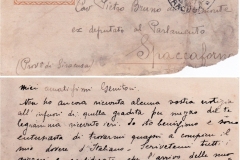 Cav Pietro Bruno di Belmonte
ex deputato al Parlamento
Spaccaforno
(Prov. di Siracusa)
miei amatissimi Genitori
Non ho ancora ricevuto alcuna vostra notizia
all'infuori di quella gradita per mezzo del te
legramma ricevuto ieri. Io sto benissimo e sono
entusiasta di trovarmi quaggiù a compiere il
mio dovere d'Italiano. Scrivetemi tutti
dell'arrivo della mia